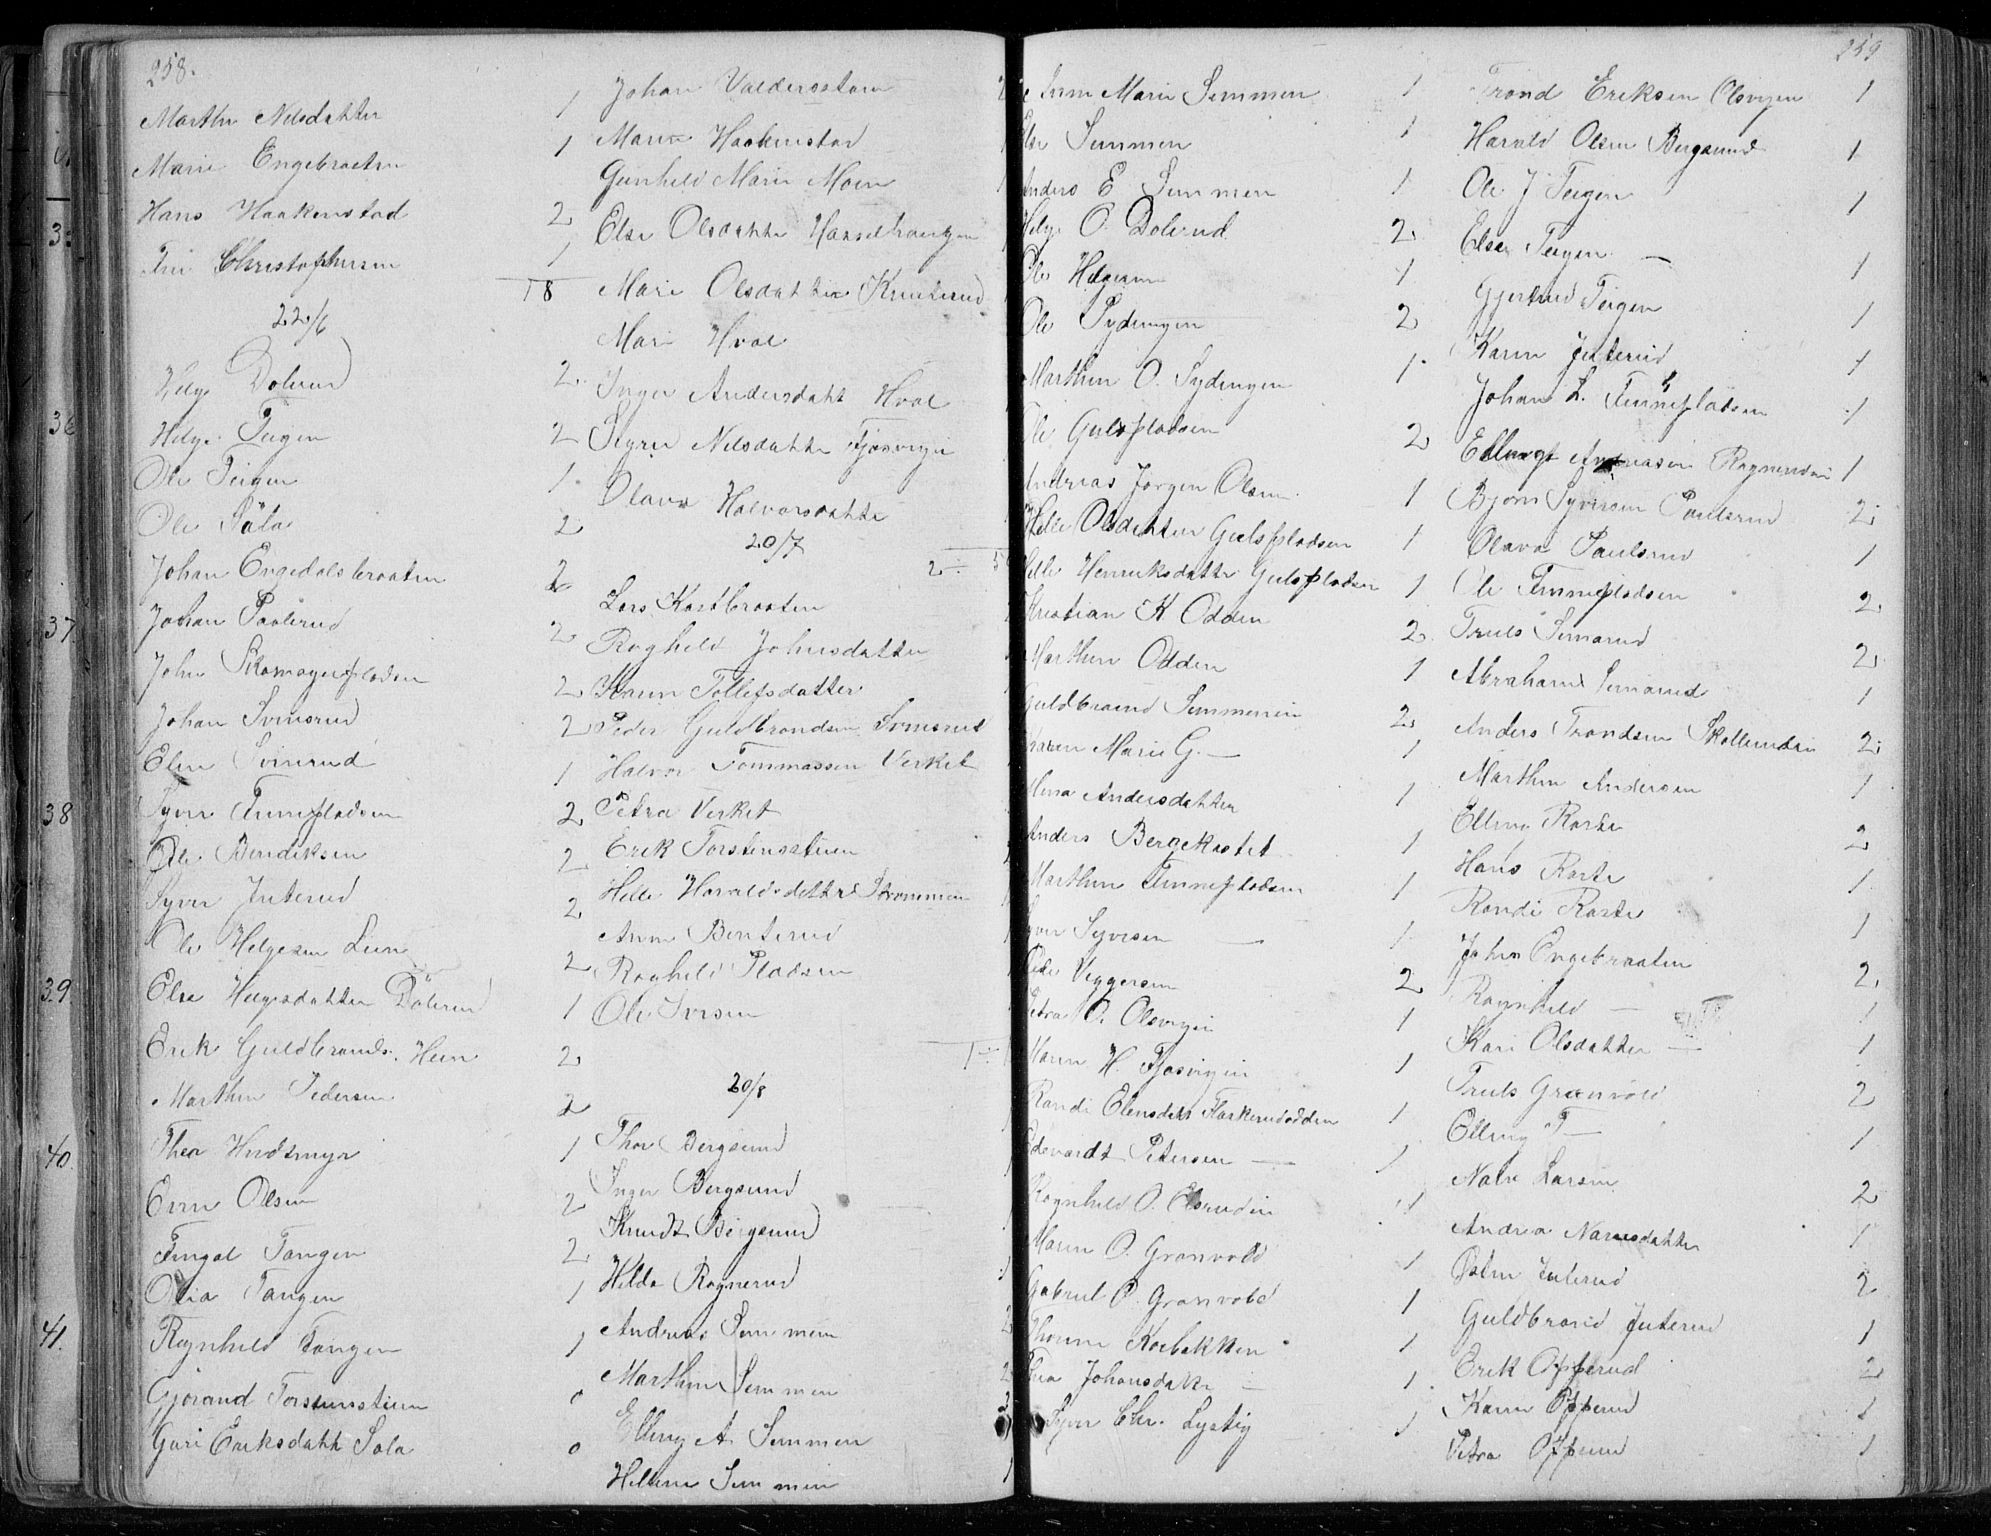 258.
Marthe Nilsdatter 1
Marie Engebraaten 1
Hans Haakenstad 2
Christophersen 1
18
22/6
Helge Dolerud 2
Helge Teigen 2
Ole Teigen 1
Ole Sata 2
Johan Engedalsbraaten 2
Johan Paalerud 2
John Skomagerpladsen 2
Johan Svinsrud 2
Elen Svinsrud 1
Syver Finnepladsen 2
Ole Bendiksen 2
Syver Juterud 2
Ole Helgesen Lien 2
Else Helgesdatter Dölerud 1
Erik Guldbrands. Hein 2
Marthin Pedersen 2
Thea Hvidsmyr 1
Even Olsen 2
Fingal Tangen 2
Olia Tangen 1
Ragnhild Tangen 1
Gjörand Torstensstuen 0
Guri Eriksdatt Sola 0
Johan Valdersstøen
Maren Haakenstad
Gunhild Marie Moen
Else Olsdatter Hasselhaugen
Mari Olsdatter Knuterud
Mari Hval
Inger Andersdatt Hval
Sigrid Nilsdatter Fjøsvigen
Olava Halvorsdatter
20/7
Lars Kastbraaten
Raghild Johnsdatter
Karen Tollefsdatter
Peder Guldbrandsen Svinsrud
Halvor Tommassen Verket
Petra Verket
Erik Torstensstuen
Helle Haraldsdatter Strommen
Anne Benterud
Raghild Pladsen
Ole Iversen
20/8
Thor Bergsund
Inger Bergsund
Knudt Bergsund
Hilda Ragnerud
Andreas Semmen
Marthin Semmen
Elling A Semmen
Hellene Semmen
259
Anne Marie Semmen 1
Else Semmen 1
Anders E Semmen 1
Helge O. Dolerud 2
Ole Helgesen 1
Ole Sydengen 2
Marthin O. Sydengen 1
Ole Gulspladsen 2
Andreas Jørgen Olsen 1
Helle Olsdatter Gulspladsen 1
Helle Henriksdatter Gulspladsen 1
Christian K. Odden 2
Marthin Odden 1
Guldbrand Semmenen 2
Karen Marie G. — 1
Mena Andersdatter 1
Anders Bergekastet 1
Marthin Finnepladsen 1
Syver Syversen — 1
Peder Veggersen 2
Petra O. Olsvigen 1
Maren H. Fjøsvigen 1
Randi Elensdatt Flaskerudodden 1
Edevardt Petersen — 1
Ragnhild O. Elsrudin 1
Maren O. Granvold 1
Gabriel O. Granvold 1
Thorine Kolbakken 1
Johansdatr — 1
Syver Chr. Lystig 1
Trond Eriksen Olsvigen 1
Harald Olsen Bergsund 1
Ole J Teigen 1
Else Teigen — 1
Gjertrud Teigen 1
Karen Juterud 1
Johan L. Finnepladsen 1
Ellingt Andreasen Ragnerudein 1
Bjørn Syversen Paulsrud 2
Olava Paulsrud 1
Ole Finnepladsen 2
Truls Semsrud 2
Abraham Semsrud 1
Anders Trondsen Skollerudein 2
Marthin Andersen 1
Elling Raste 2
Hans Raste 1
Randi Raste 1
John Engebraaten 2
Ragnhild — 1
Kari Olsdatter — 1
Truls Granvold 2
Elling T — 1
Narve Larsen 2
Andrea Narvesdatter 1
Østen Juterud 2
Guldbrand Juterud 1
Erik Opperud 2
Karen Opperud 1
Petra Opperud 1
35
36
37.
38
39.
40.
41.